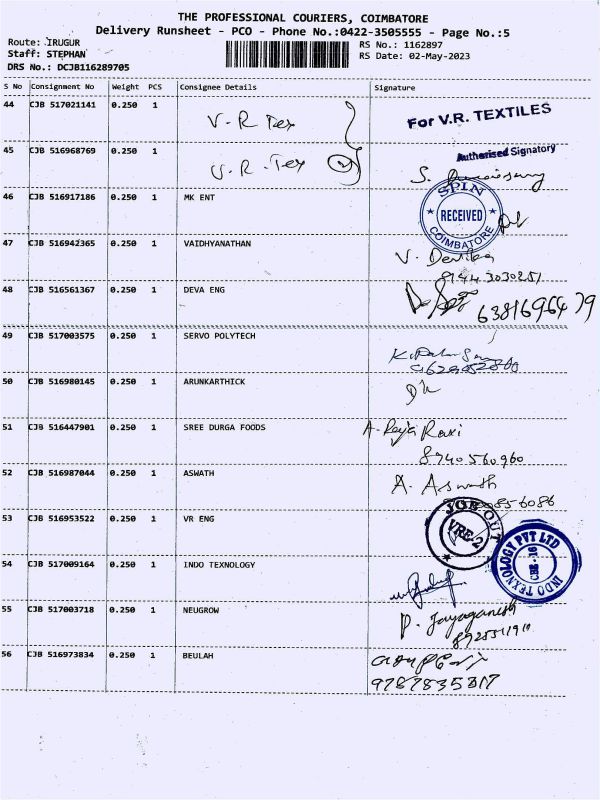 THE PROFESSIONAL COURIERS, COIMBATORE
Delivery Runsheet - PCO - Phone No.:0422-3505555 - Page No.:5
Route: IRUGUR
RS No.: 1162897
Staff: STEPHAN
RS Date: 02-May-2023
DRS No.: DCJB116289705
S No Consignment No Weight PCS Consignee Details Signature
44 CJB 517021141 0.250 1 V-R Tex For V.R. TEXTILES
Authorised Signatory
45 CJB 516968769 0.250 1 V.R.Tex S.
46 CJB 516917186 0.250 1 MK ENT
SPIN RECEIVED COIMBATORE
47 CJB 516942365 0.250 1 VAIDHYANATHAN V. Devika
91443030251
48 CJB 516561367 0.250 1 DEVA ENG 6381696479
49 CJB 517003575 0.250 1 SERVO POLYTECH
50 CJB 516980145 0.250 1 ARUNKARTHICK
51 CJB 516447901 0.250 1 SREE DURGA FOODS A-Reja Ravi
8940560960
52 CJB 516987044 0.250 1 ASWATH A. Aswath
856086
53 CJB 516953522 0.250 1 VR ENG
JOB OUT VRE-2
INDO TEXNOLOGY PVT LTD CBE-16
54 CJB 517009164 0.250 1 INDO TEXNOLOGY
55 CJB 517003718 0.250 1 NEUGROW P. Jayaganesh
56 CJB 516973834 0.250 1 BEULAH
9787835317